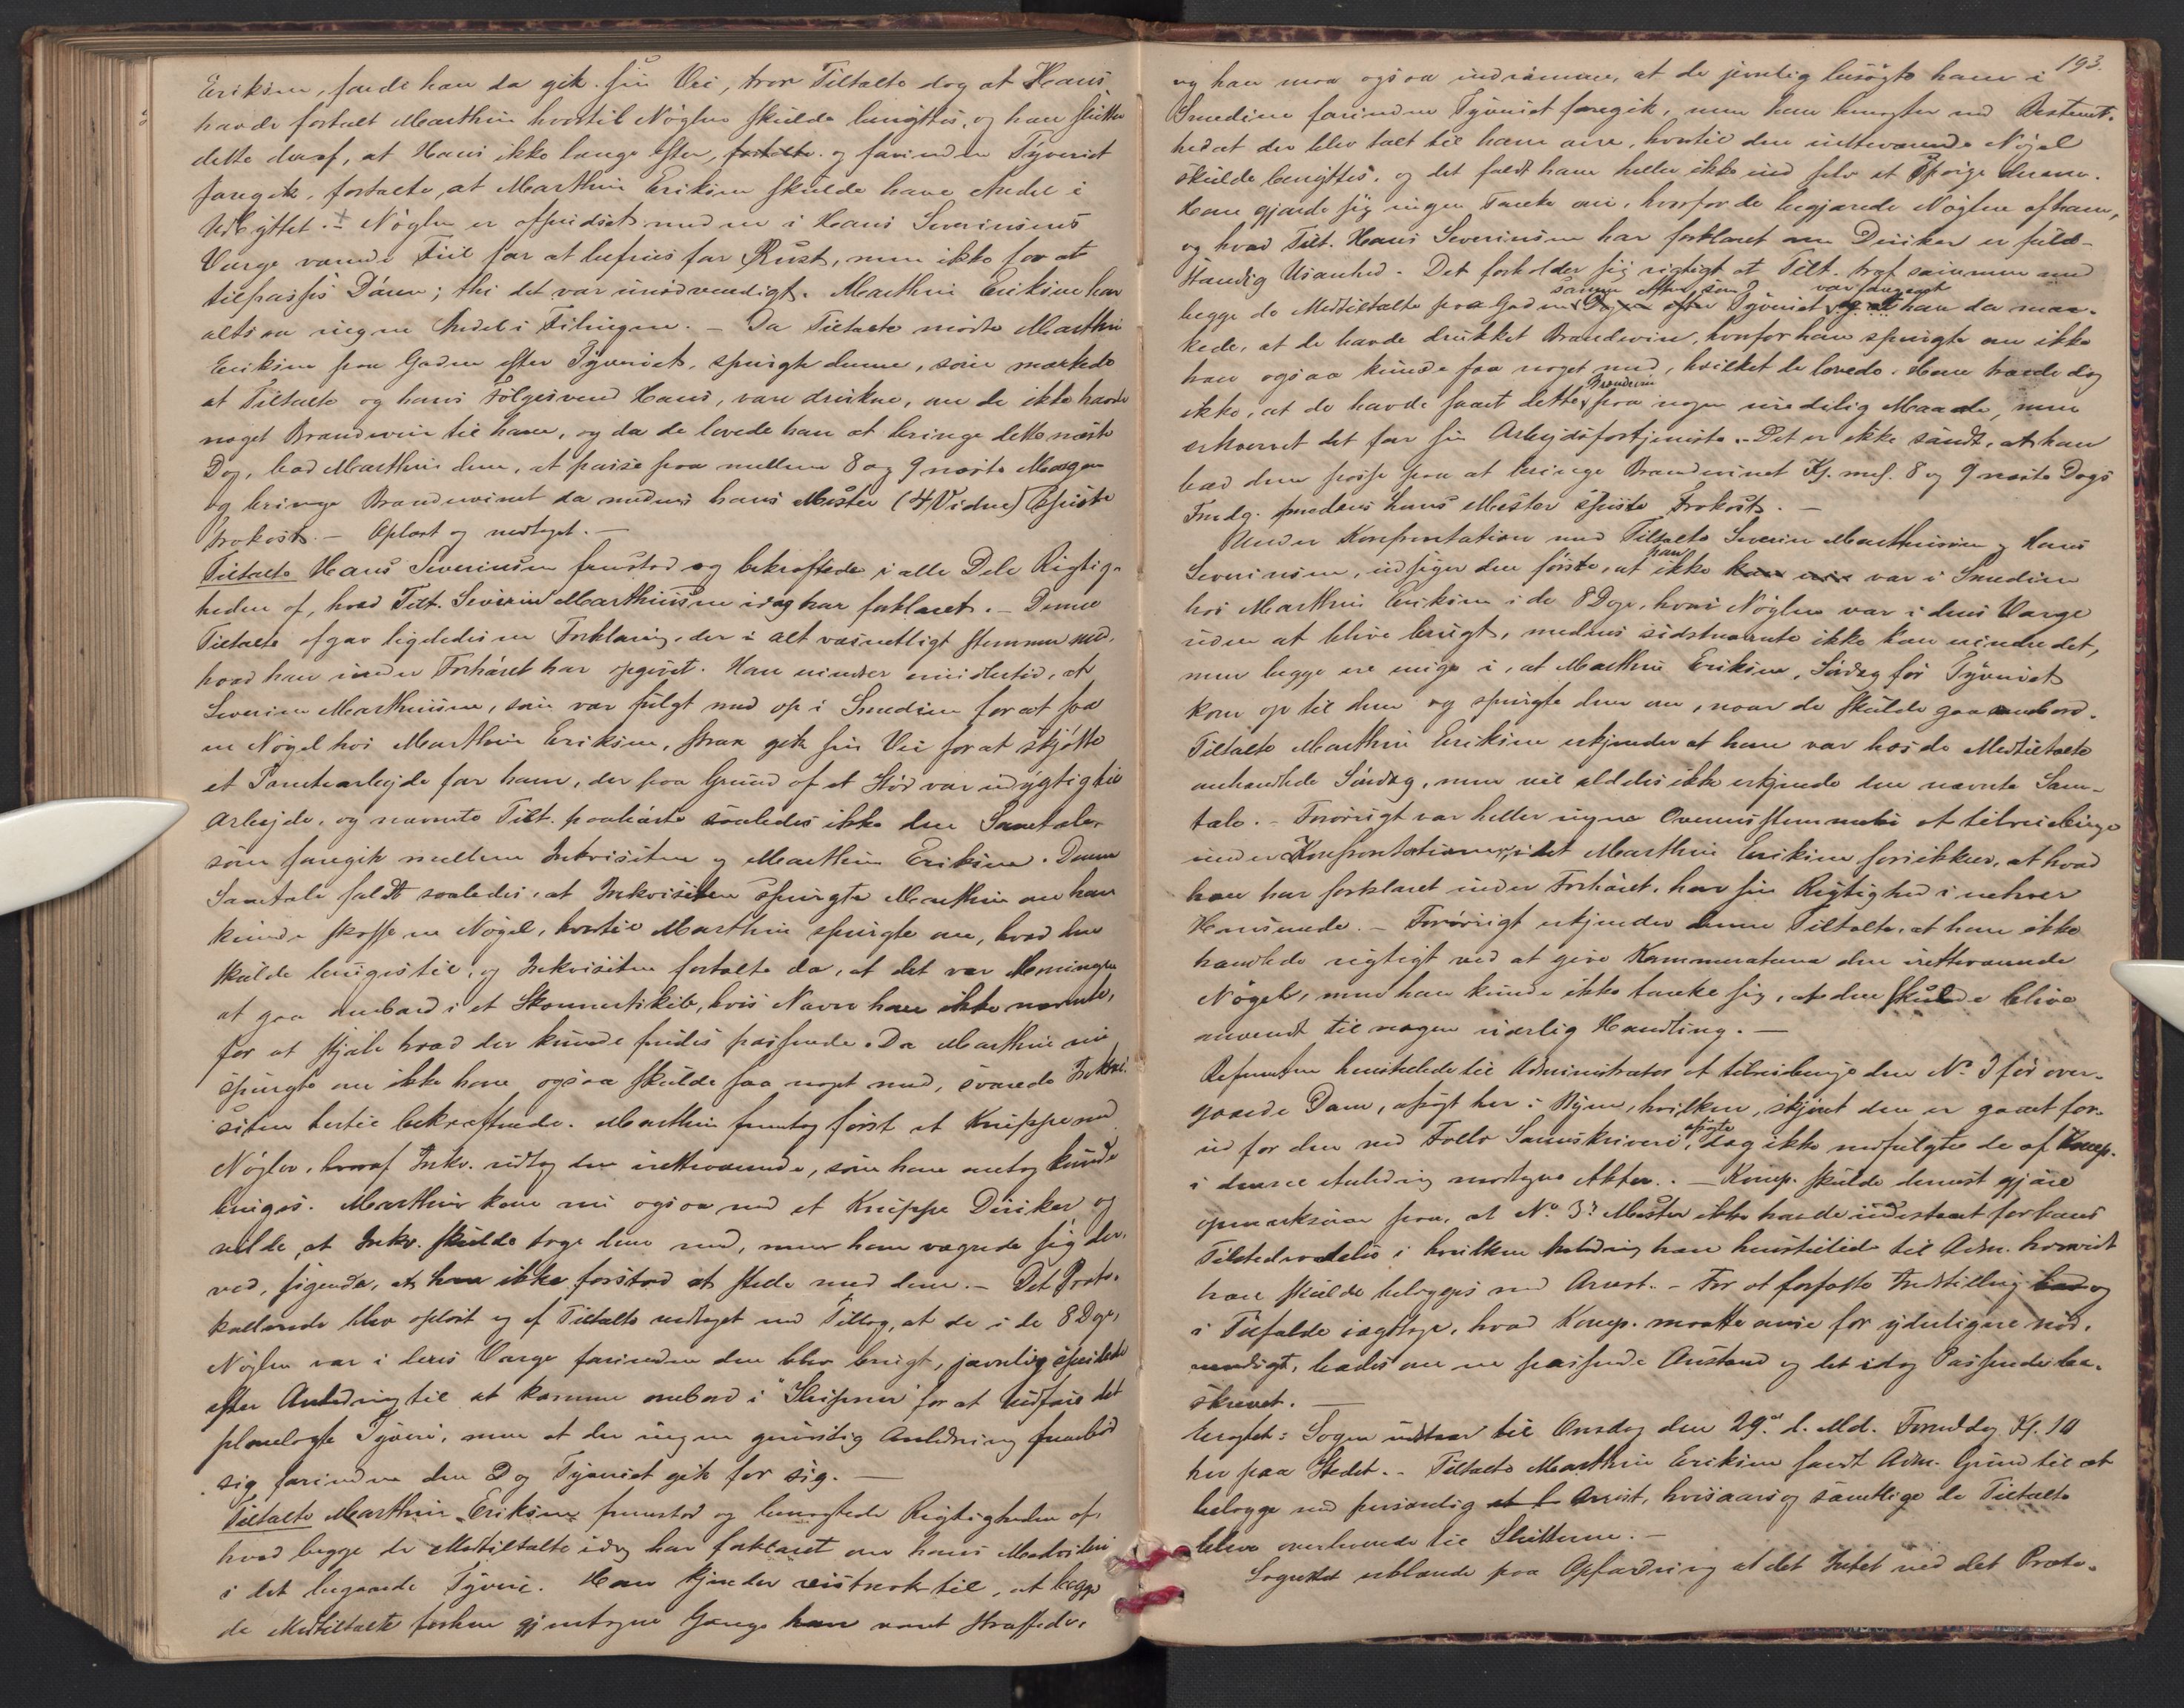 Eriksen, fordi han da gik sin Vei, tror Tiltalte dog at Hans
havde fortalt Marthin hvortil Nøglen skulde benyttes, og han slutter
dette deraf, at Hans ikke længe efter, fortalte og forinden Tyveriet
foregik, fortalte at Marthin Eriksen skulde have Andel i
Udbyttet. Nøglen er afpudset med en i Hans Severinsens
Værge værende Fiil for at befries for Rust, men ikke for at
tilpasses Døren; thi det var unødvendigt. Marthin Eriksen har
altsaa ingen Andel i Filingen. – Da Tiltalte mødte Marthin
Eriksen paa Gaden efter Tyveriet, spurgte denne, som mærkede
at Tiltalte og hans Følgesvend Hans, vare drukne, om de ikke havde
noget Brændeviin til ham, og da de lovede ham at bringe dette næste
Dag, bad Marthin dem, at passe paa mellem 8 og 9 næste Morgen
og bringe Brændevinet da medens hans Mester (4 Vidne) spiste
Frokost. – Oplæst og vedtaget. –
Tiltalte Hans Severinsen fremstod og bekræftede i alle Dele Rigtig-
heden af, hvad Tilt. Severin Marthinsen idag har forklaret. – Denne
Tiltalte afgav ligeledes en Forklaring, der i alt væsentligt stemmer med,
hvad han under Forhøret har opgivet. Han mindes imidlertid, at
Severin Marthinsen, som var fulgt med op i Smedien for at faa
en Nøgel hos Marthin Eriksen, strax gik sin Vei for at skjøtte
et Arbejde for ham, der paa Grund af et Stød var udygtig til
Arbejde, og nævnte Tilt. paahørte saaledes ikke den Samtale
som foregik mellem Inkvisiten og Marthin Eriksen. Denne
Samtale faldt saaledes, at Inkvisiten spurgte Marthin om han
kunde skaffe en Nøgel, hvortil Marthin spurgte om, hvad den
skulde bruges til, og Inkvisiten fortalte da, at det var Meningen
at gaa ombord i et Skonnertskib, hvis Navn han ikke nævnte,
for at stjæle hvad der kunde findes passende. Da Marthin nu
spurgte om ikke han ogsaa skulde faa noget med, svarede Inkvi-
siten hertil bekræftende. Marthin fremtog først et Knippe med
Nøgler, hvoraf Inkv. udtog den iretteværende, som han antog kunde
bruges. Marthin kom nu ogsaa med et Knippe Diriker og
vilde, at Inkv. skulde tage dem med, men han vægrede sig der-
ved, sigende, at han ikke forstod at stede med dem. – Det Proto-
kollerede blev oplæst og af Tiltalte vedtaget med Tillæg, at de i de 8 Dage,
Nøglen var i deres Værge forinden den blev brugt, jævnlig speidede
efter Anledning til at komme ombord i "Sleipner" for at udføre det
planlagte Tyveri, men at der ingen gunstig Anledning frembød
sig forinden den Dag Tyveriet gik for sig. –
Tiltalte Marthin Eriksen fremstod og benægtede Rigtigheden af,
hvad begge de Medtiltalte idag har forklaret om hans Medviden
i det begaaede Tyveri. Han kjender vistnok til, at begge
de Medtiltalte forhen gjentagne Gange have været straffede,
193.
og han maa ogsaa indrømme, at de jevnlig besøgte ham i
Smedien forinden Tyveriet foregik, men han benægter med Bestemt-
hed at der blev talt til ham om, hvortil den iretteværende Nøgel
skulde benyttes, og det faldt ham heller ikke ind selv at spørge derom.
Han gjorde sig ingen Tanke om, hvorfor de begjærede Nøglen af ham,
og hvad Tilt. Hans Severinsen har forklaret om Diriker er fuld-
stændig Usandhed. – Det forholder sig rigtigt at Tilt. traf sammen med
begge de Medtiltalte paa Gaden Dagen efter Tyveriet og at han da mær-
kede, at de havde drukket Brændeviin, hvorfor han spurgte om ikke
han ogsaa kunde faa noget med, hvilket de lovede. Han troede dog
ikke, at de havde faaet dette Brændeviin paa nogen uredelig Maade, men
erhvervet det for sin Arbejdsfortjeneste. – Det er ikke sandt, at han
bad dem passe paa at bringe Brændevinet Kl. mel. 8 og 9 næste Dags
Frmdg. medens hans Mester spiste Frokost. –
Under Konfrontation med Tiltalte Severin Marthinsen og Hans
Severinsen, udsiger den første, at han ikke var i Smedien
hos Marthin Eriksen i de 8 Dage, hvori Nøglen var i dens Værge
uden at blive brugt, medens sidstnævnte ikke kan mindes det,
men begge ere enige i, at Marthin Eriksen, Søndag før Tyveriet
kom op til dem og spurgte dem om, naar de skulde gaa ombord.
Tiltalte Marthin Eriksen erkjender at han var hos de Medtiltalte
omhandlede Søndag, men vil aldeles ikke erkjende den nævnte Sam-
tale. – Forøvrigt var heller ingen Overensstemmelse at tilveiebringe
under Konfrontationen, idet Marthin Eriksen forsikkrer, at hvad
han har forklaret under Forhøret, har sin Rigtighed i enhver
Henseende. – Forøvrigt erkjender denne Tiltalte, at han ikke
handlede rigtigt ved at give Kammeraterne den iretteværende
Nøgel, men han kunde ikke tænke sig, at den skulde blive
anvendt til nogen uærlig Handling. –
Referenten henstillede til Administrator at tilveiebringe den No. 3 før over-
gaaede Dom, afsagt her i Byen, hvilken, skjønt den er gaaet for-
ud for den ved Follo Sorenskriveri afsagte, dog ikke medfulgte de af Komp.
i denne Anledning modtagne Akter. – Komp. skulde dernæst gjøre
opmærksom paa, at No. 3's Mester ikke havde indestaaet for hans
Tilstedeværelse i hvilken Anledning han henstillede til Adm. hvorvidt
han skulde belægges med Arrest. – For at forfatte Indstilling og
i Tilfælde iagttage, hvad Komp. maatte anse for yderligere nød-
vendigt, bades om en passende Anstand og det idag Passerede be-
skrevet. –
Eragtet: Sagen udstaar til Onsdag den 29de d. Md. Formiddag Kl. 10
her paa Stedet. – Tiltalte Marthin Eriksen fandt Adm. Grund til at
belægge med personlig Arrest, hvisaarsag samtlige de Tiltalte
bleve overleverede til Slutterne. –
Sagnettet erklærede paa Opfordring at det Intet ved det Proto-